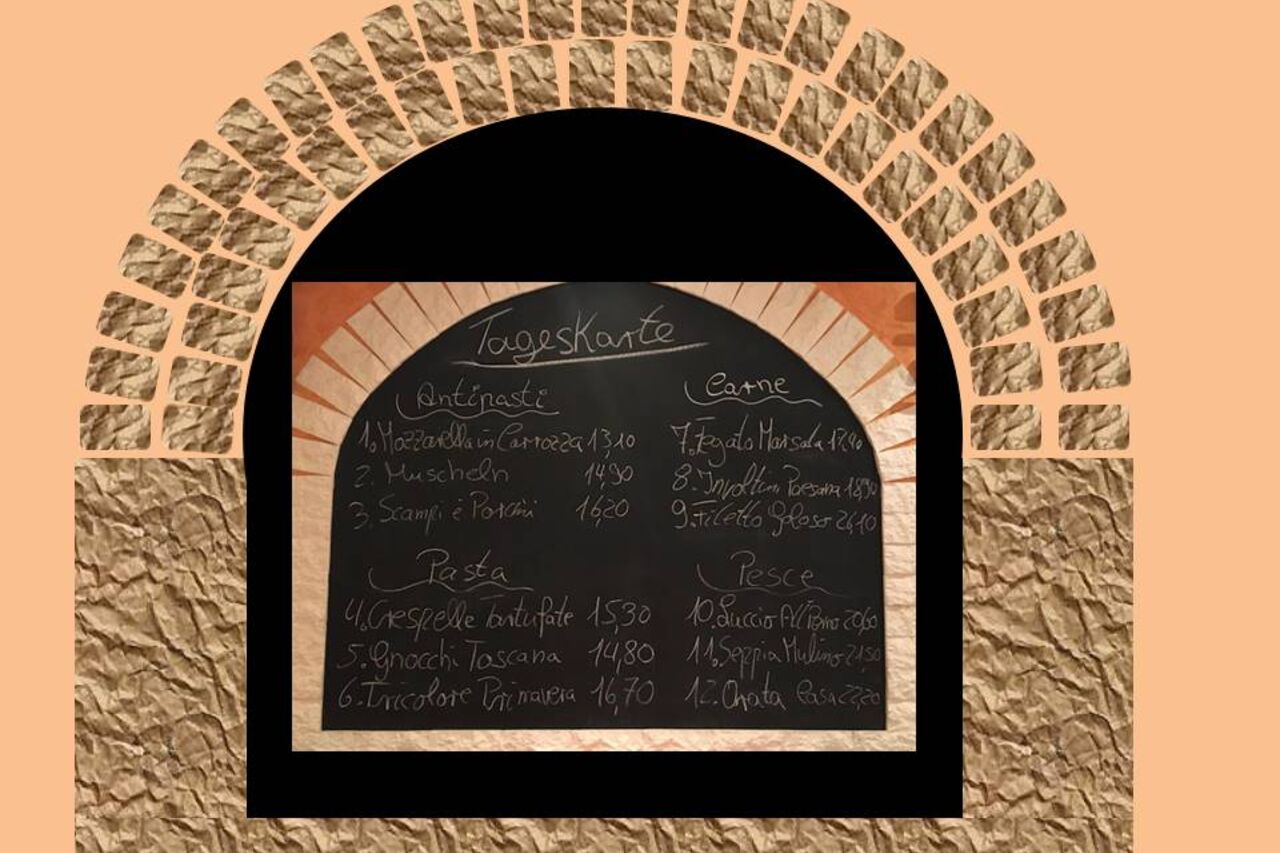 Tageskarte
Antipasti
1. Mozzarella in Carrozza 13,10
2. Muscheln 14,90
3. Scampi e Porcini 16,20
Pasta
4. Crespelle Tartufate 15,30
5. Gnocchi Toscana 14,80
6. Tricolore Primavera 16,70
Carne
7. Fegato Marsala 17,90
8. Involtini Paesana 18,90
9. Filetto Goloso 26,10
Pesce
10. Luccio Al Forno 20,60
11. Seppia Mulino 21,50
12. Orata Casa 22,20